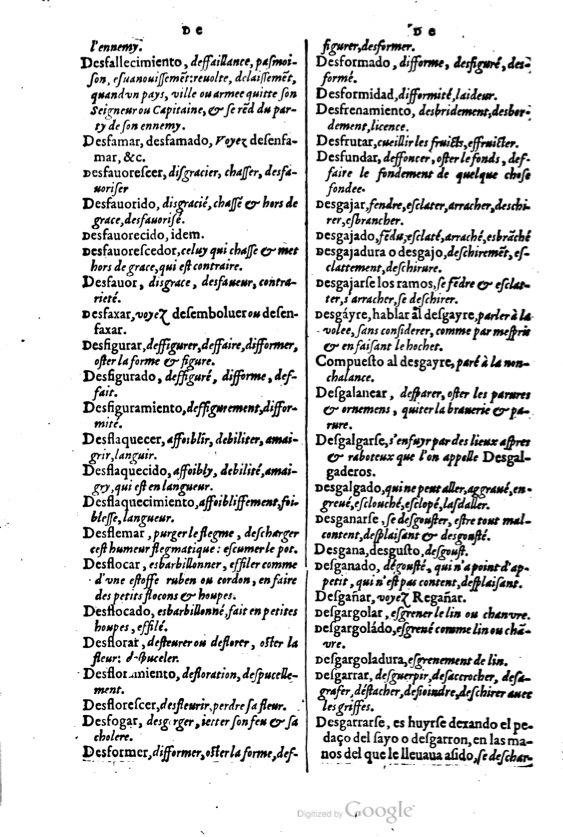 D E
l'ennemy.
Desfallecimiento, deffaillance, pasmoi-
son, esuanouissemẽt: reuolte, delaissemẽt,
quand vn pays, ville ou armee quitte son
Seigneur ou Capitaine, & se rẽd du par-
ty de son ennemy.
Desfamar, desfamado, Voyez desenfa-
mar, &c.
Desfauorescer, disgracier, chasser, desfa-
uoriser
Desfauorido, disgracié, chassé & hors de
grace, desfauorisé.
Desfauorecido, idem.
Desfauorescedor, celuy qui chasse & met
hors de grace, qui est contraire.
Desfauor, disgrace, desfaueur, contra-
rieté.
Desfaxar, voyez desemboluer ou desen-
faxar.
Desfigurar, deffigurer, deffaire, difformer,
oster la forme & figure.
Desfigurado, deffiguré, difforme, def-
fait.
Desfiguramiento, deffigurement, diffor-
mité.
Desflaquecer, affoiblir, debiliter, amai-
grir, languir.
Desflaquecido, affoibly, debilité, amai-
gry, qui est en langueur.
Desflaquecimiento, affoiblissement, foi-
blesse, langueur.
Desflemar, purger le flegme, descharger
cest humeur flegmatique: escumer le pot.
Desflocar, esbarbillonner, effiler comme
d'vne estoffe ruben ou cordon, en faire
des petits flocons & houpes.
Desflocado, esbarbillonné, fait en petites
houpes, effilé.
Desflorar, defleurer ou deflorer, oster la
fleur: despuceler.
Desfloramiento, defloration, despucelle-
ment.
Desflorescer, desfleurir, perdre sa fleur.
Desfogar, desgorger, ietter son feu & sa
cholere.
Desformer, difformer, oster la forme, def-
D E
figurer, desformer.
Desformado, difforme, desfiguré, des-
formé.
Desformidad, difformité, laideur.
Desfrenamiento, desbridement, desbor-
dement, licence.
Desfrutar, cueillir les fruicts, effruicter.
Desfundar, deffoncer, oster le fonds, def-
faire le fondement de quelque chose
fondee.
Desgajar, fendre, esclater, arracher, deschi-
rer, esbrancher.
Desgajado, fẽdu, esclaté, arraché, esbrãché
Desgajadura o desgajo, deschiremẽt, es-
clattement, deschirure.
Desgajarse los ramos, se fẽdre & esclat-
ter, s'arracher, se deschirer.
Desgáyre, hablar al desgayre, parler à la
volee, sans considerer, comme par mespris
& en faisant le hochet.
Compuesto al desgayre, paré à la non-
chalance.
Desgalanear, desparer, oster les parures
& ornemens, quiter la brauerie & pa-
rure.
Desgalgarse, s'enfuyr par des lieux aspres
& raboteux que l'on appelle Desgal-
gaderos.
Desgalgado, qui ne peut aller, aggraué, en-
greué, esclouché, esclopé, las d'aller.
Desganarse, se desgouster, estre tout mal-
content, desplaisant & desgousté.
Desgana, desgusto, desgoust.
Desganado, dégousté, qui n'a point d'ap-
petit, qui n'est pas content, desplaisant.
Desgañar, voyez Regañar.
Desgargolar, esgrener le lin ou chanvre.
Desgargoládo, esgrené comme lin ou chã-
vre.
Desgargoladura, esgrenement de lin.
Desgarrar, desguerpir, desaccrocher, desa-
grafer, déstacher, desioindre, deschirer auec
les griffes.
Desgarrarse, es huyrse dexando el pe-
daço del sayo o desgarron, en las ma-
nos del que lleuaua asido, se deschar-
Digitized by Google